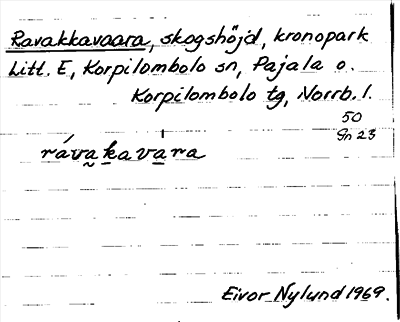 Ravakkavaara, skogshöjd, kronopark
Litt. E, Korpilombolo sn, Pajala o.
Korpilombolo tg, Norrb. l.
50
Gn 23
rávakavara
Eivor Nylund 1969.